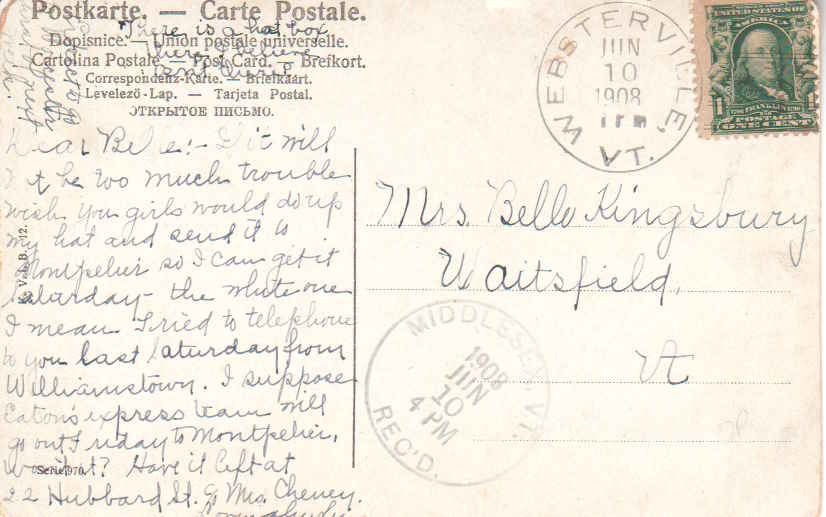 Postkarte. — Carte Postale.
Dopisnice. — Union postale universelle.
Cartolina Postale — Post Card. — Brefkort.
Correspondenz-Karte. — Briefkaart.
Levelező-Lap. — Tarjeta Postal.
ОТКРЫТОЕ ПИСЬМО.
There is a hat box
there I believe
Dear Belle:- If it will
not be too much trouble
wish you girls would do up
my hat and send it to
Montpelier so I can get it
Saturday - the white one
I mean. I tried to telephone
to you last Saturday from
Williamstown. I suppose
Eaton's express team will
go out Friday to Montpelier,
won't it? Have it left at
22 Hubbard St. % Mrs. Cheney.
Serie 970
WEBSTERVILLE,
JUN
10
1908
VT.
UNITED STATES
1
FRANKLIN
POSTAGE
ONE CENT
Mrs. Belle Kingsbury
Waitsfield,
Vt
MIDDLESEX, VT.
1908
JUN
10
4 PM
REC'D.